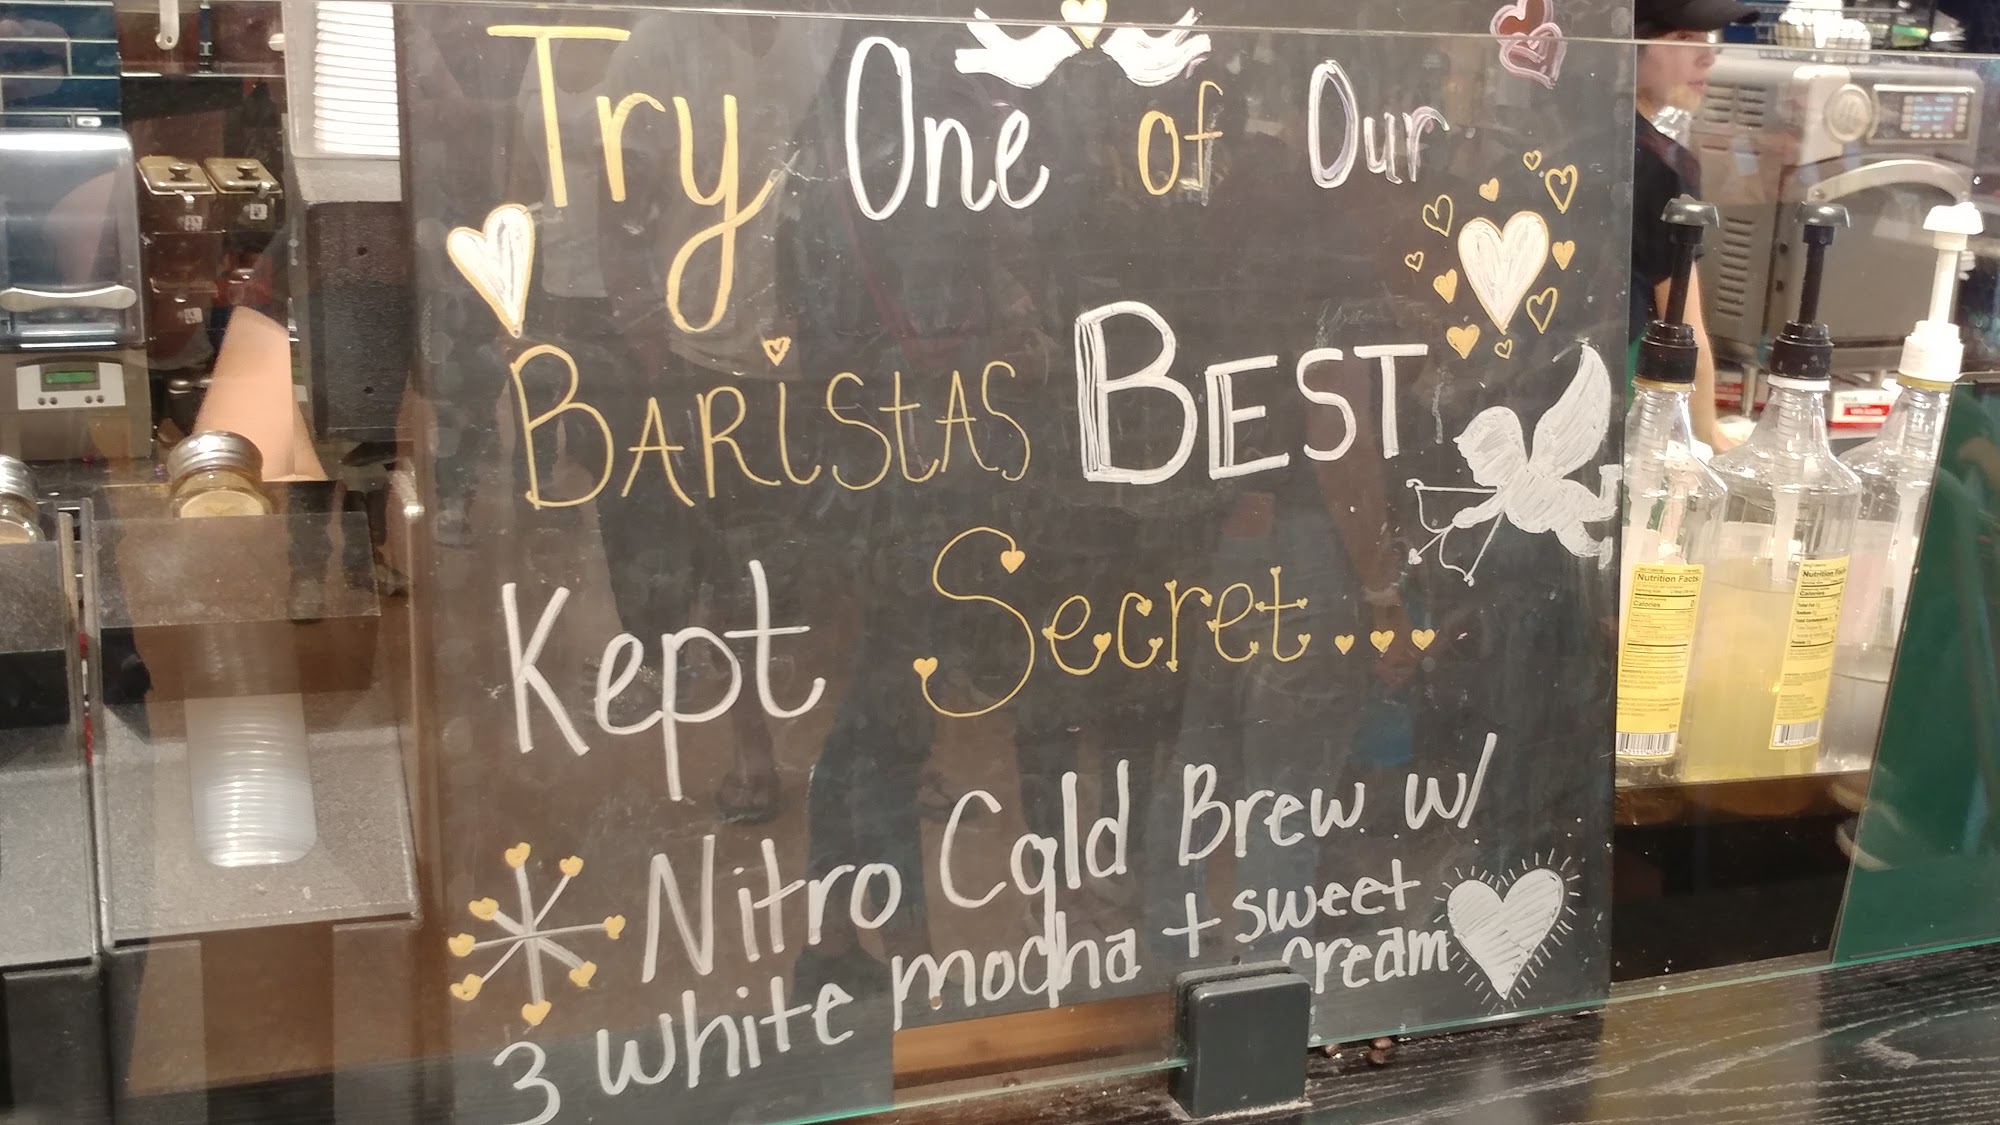 Try One of Our
BARiStAS BEST
Kept Secret...
Nitro Cold Brew w/
3 white mocha + sweet
cream
Nutrition Facts
Calories
Nutrition Facts
Calories